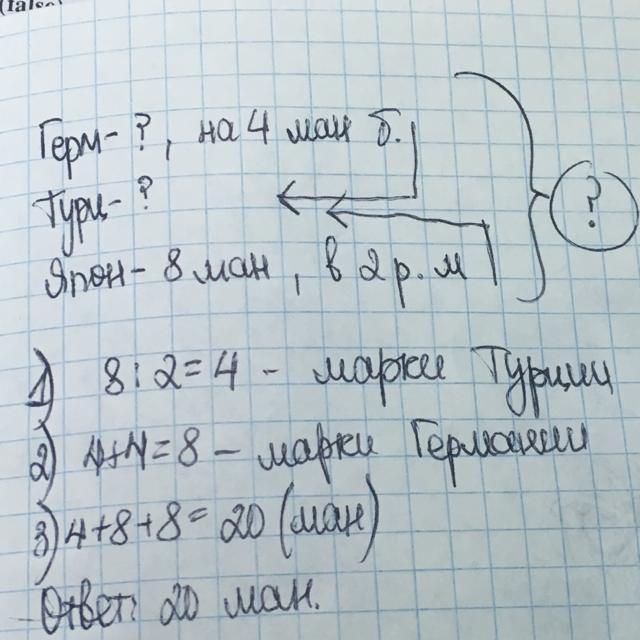 (false)
Герм- ?, на 4 ман б.
Турц- ?
?
Япон- 8 ман, в 2 р. м
1) 8 : 2 = 4 - марки Турции
2) 4+4=8 - марки Германии
3) 4+8+8= 20 (ман)
Ответ: 20 ман.